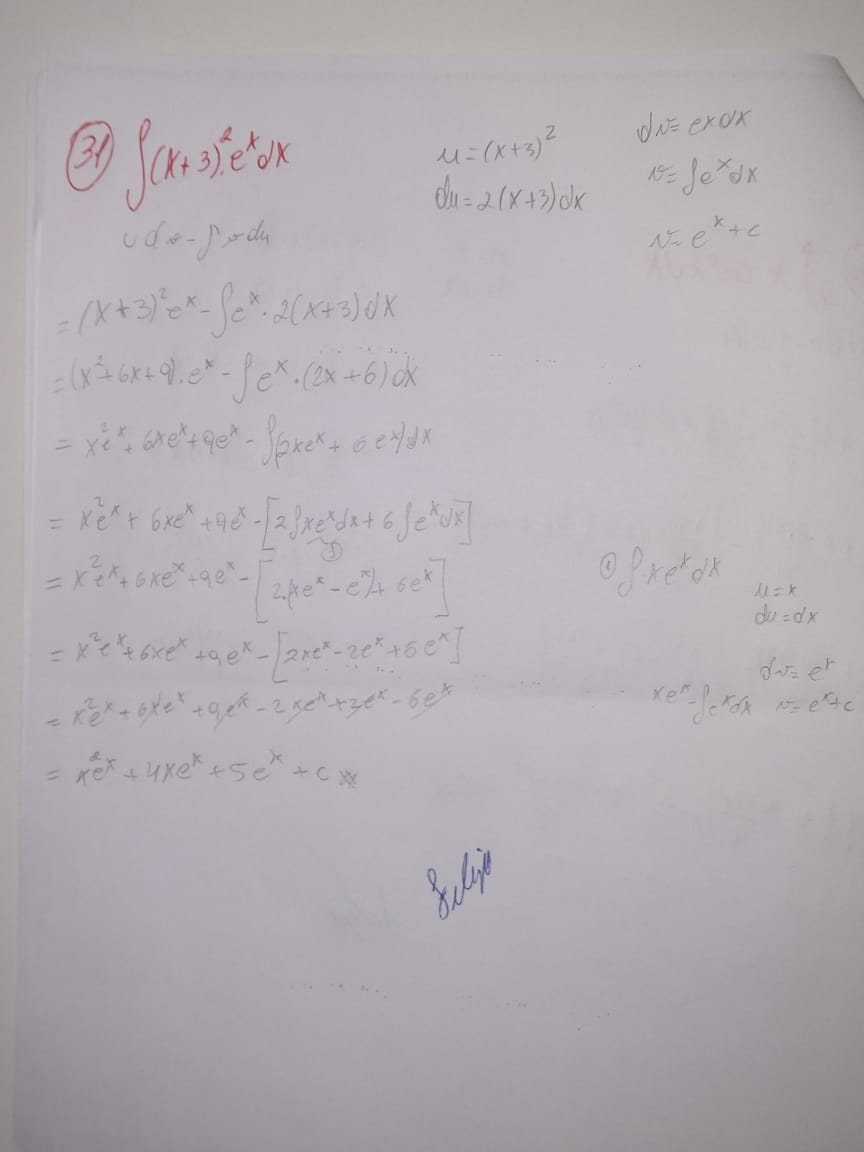 31 ∫(x+3)².eˣdx
u=(x+3)²
du=2(x+3)dx
dv=exdx
v=∫eˣdx
v=eˣ+c
udv-∫vdu
=(x+3)²eˣ-∫eˣ.2(x+3)dx
=(x²+6x+9).eˣ-∫eˣ.(2x+6)dx
=x²eˣ+6xeˣ+9eˣ-∫(2xeˣ+6eˣ)dx
=x²eˣ+6xeˣ+9eˣ-[2∫xeˣdx+6∫eˣdx]
①
=x²eˣ+6xeˣ+9eˣ-[2.(xeˣ-eˣ)+6eˣ]
=x²eˣ+6xeˣ+9eˣ-[2xeˣ-2eˣ+6eˣ]
=x²eˣ+6xeˣ+9eˣ-2xeˣ+2eˣ-6eˣ
=x²eˣ+4xeˣ+5eˣ+c
① ∫xeˣdx
u=x
du=dx
dv=eˣ
v=eˣ+c
xeˣ-∫eˣdx